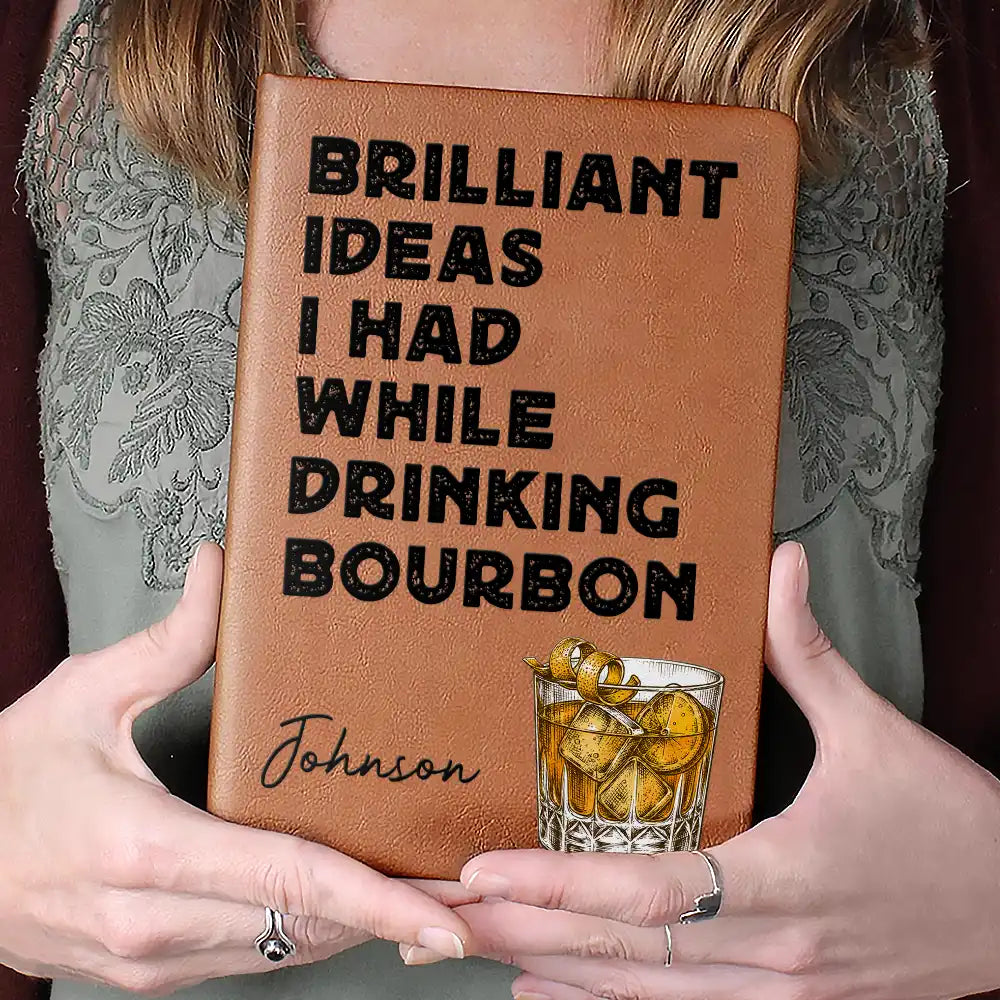 BRILLIANT
IDEAS
I HAD
WHILE
DRINKING
BOURBON
Johnson